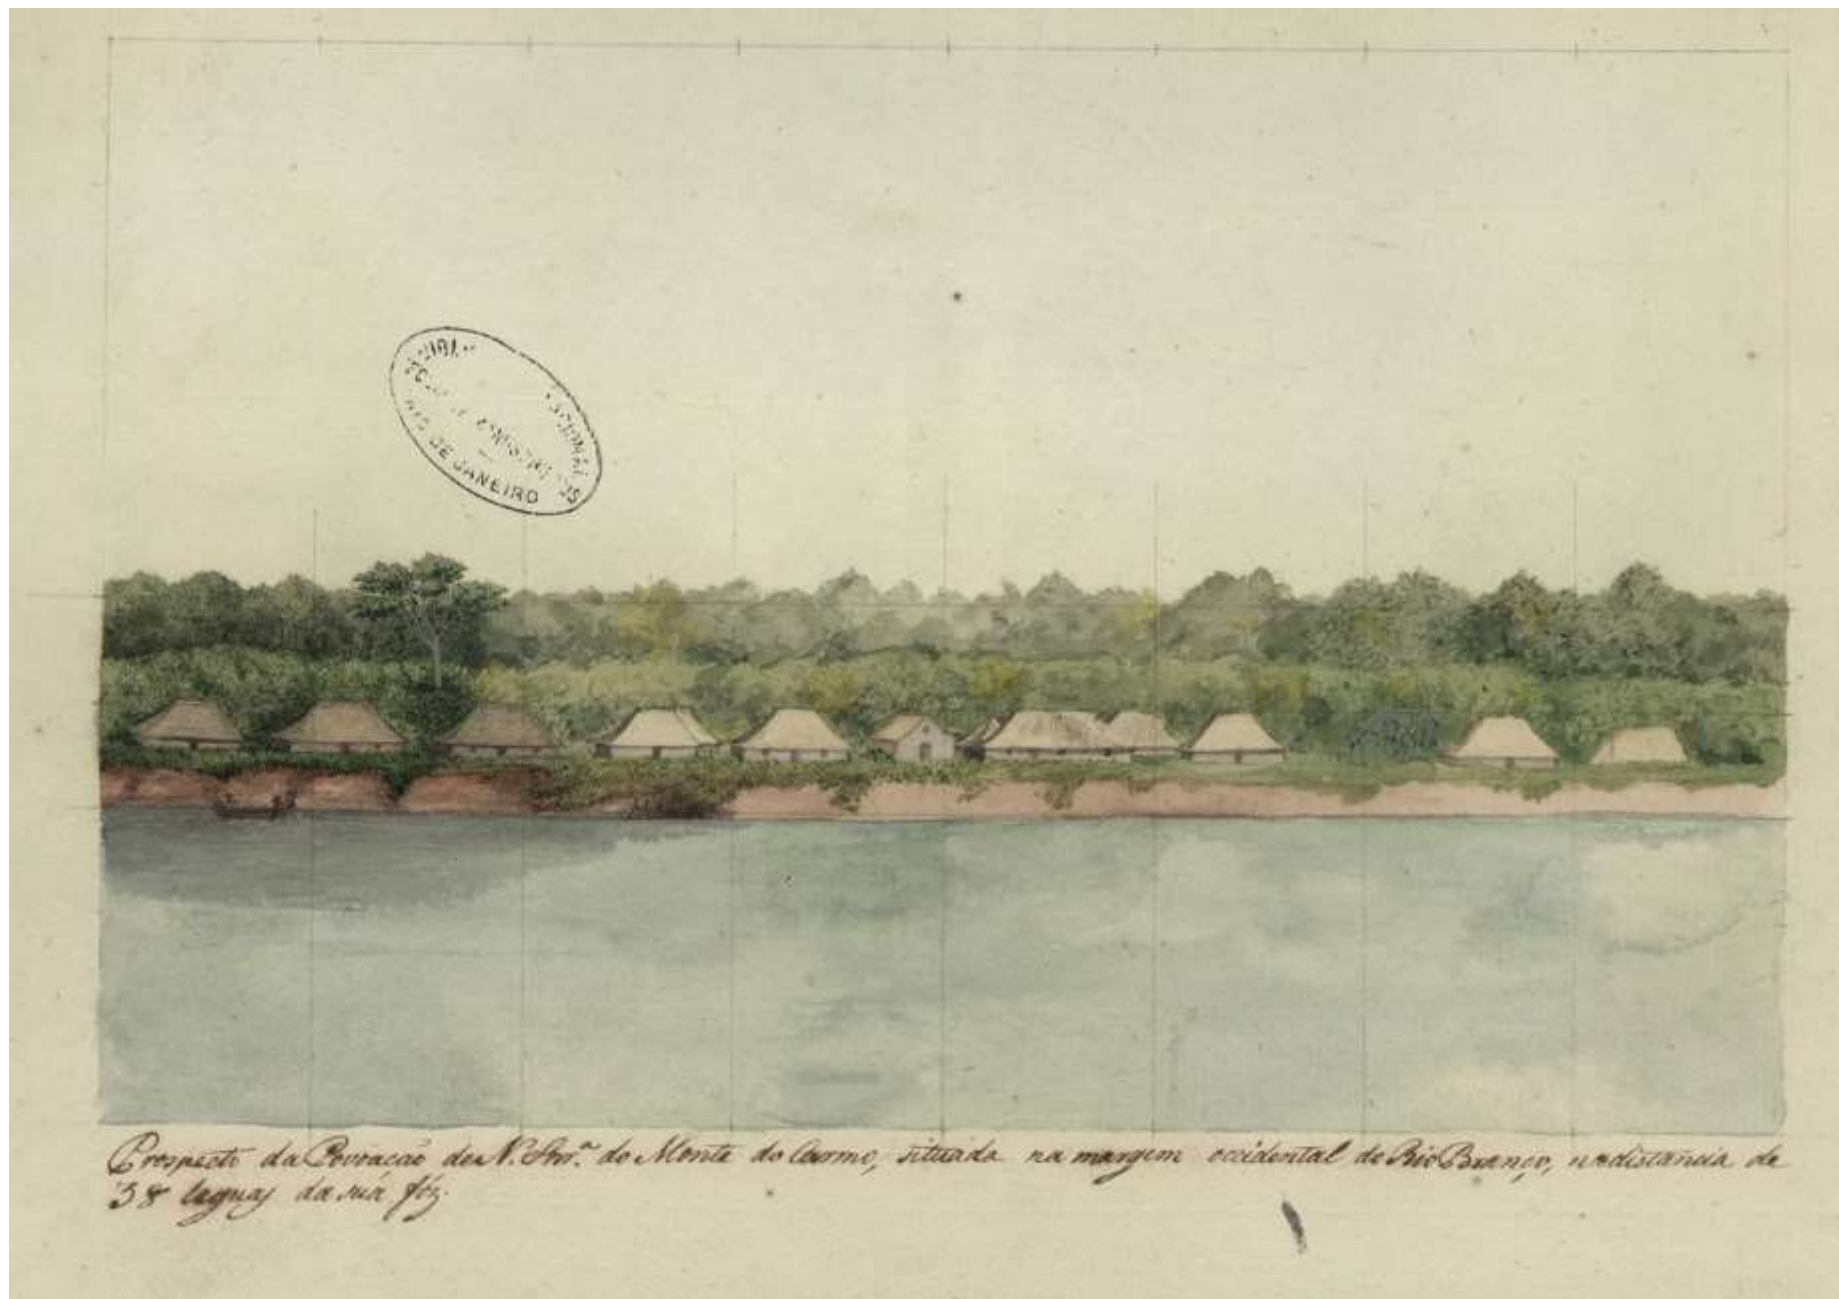 NACIONAL
RIO DE JANEIRO
Prospecto da Povoação de N. Snr.ª do Monte do Carmo, situada na margem occidental do Rio Branco, na distancia de
38 leguas da sua fóz.